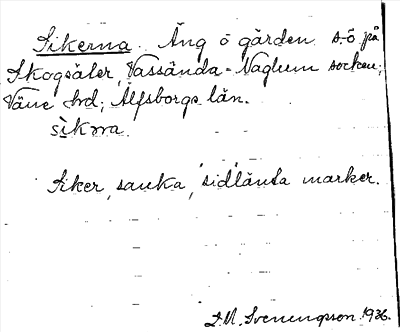 Sikerna. Äng ö gården s-ö på
Skogsäler, Vassända-Naglum socken;
Väne hrd; Älfsborgs län.
sìkṃa.
Siker, sanka, sidlänta marker.
D.A. Svenungsson 1936.